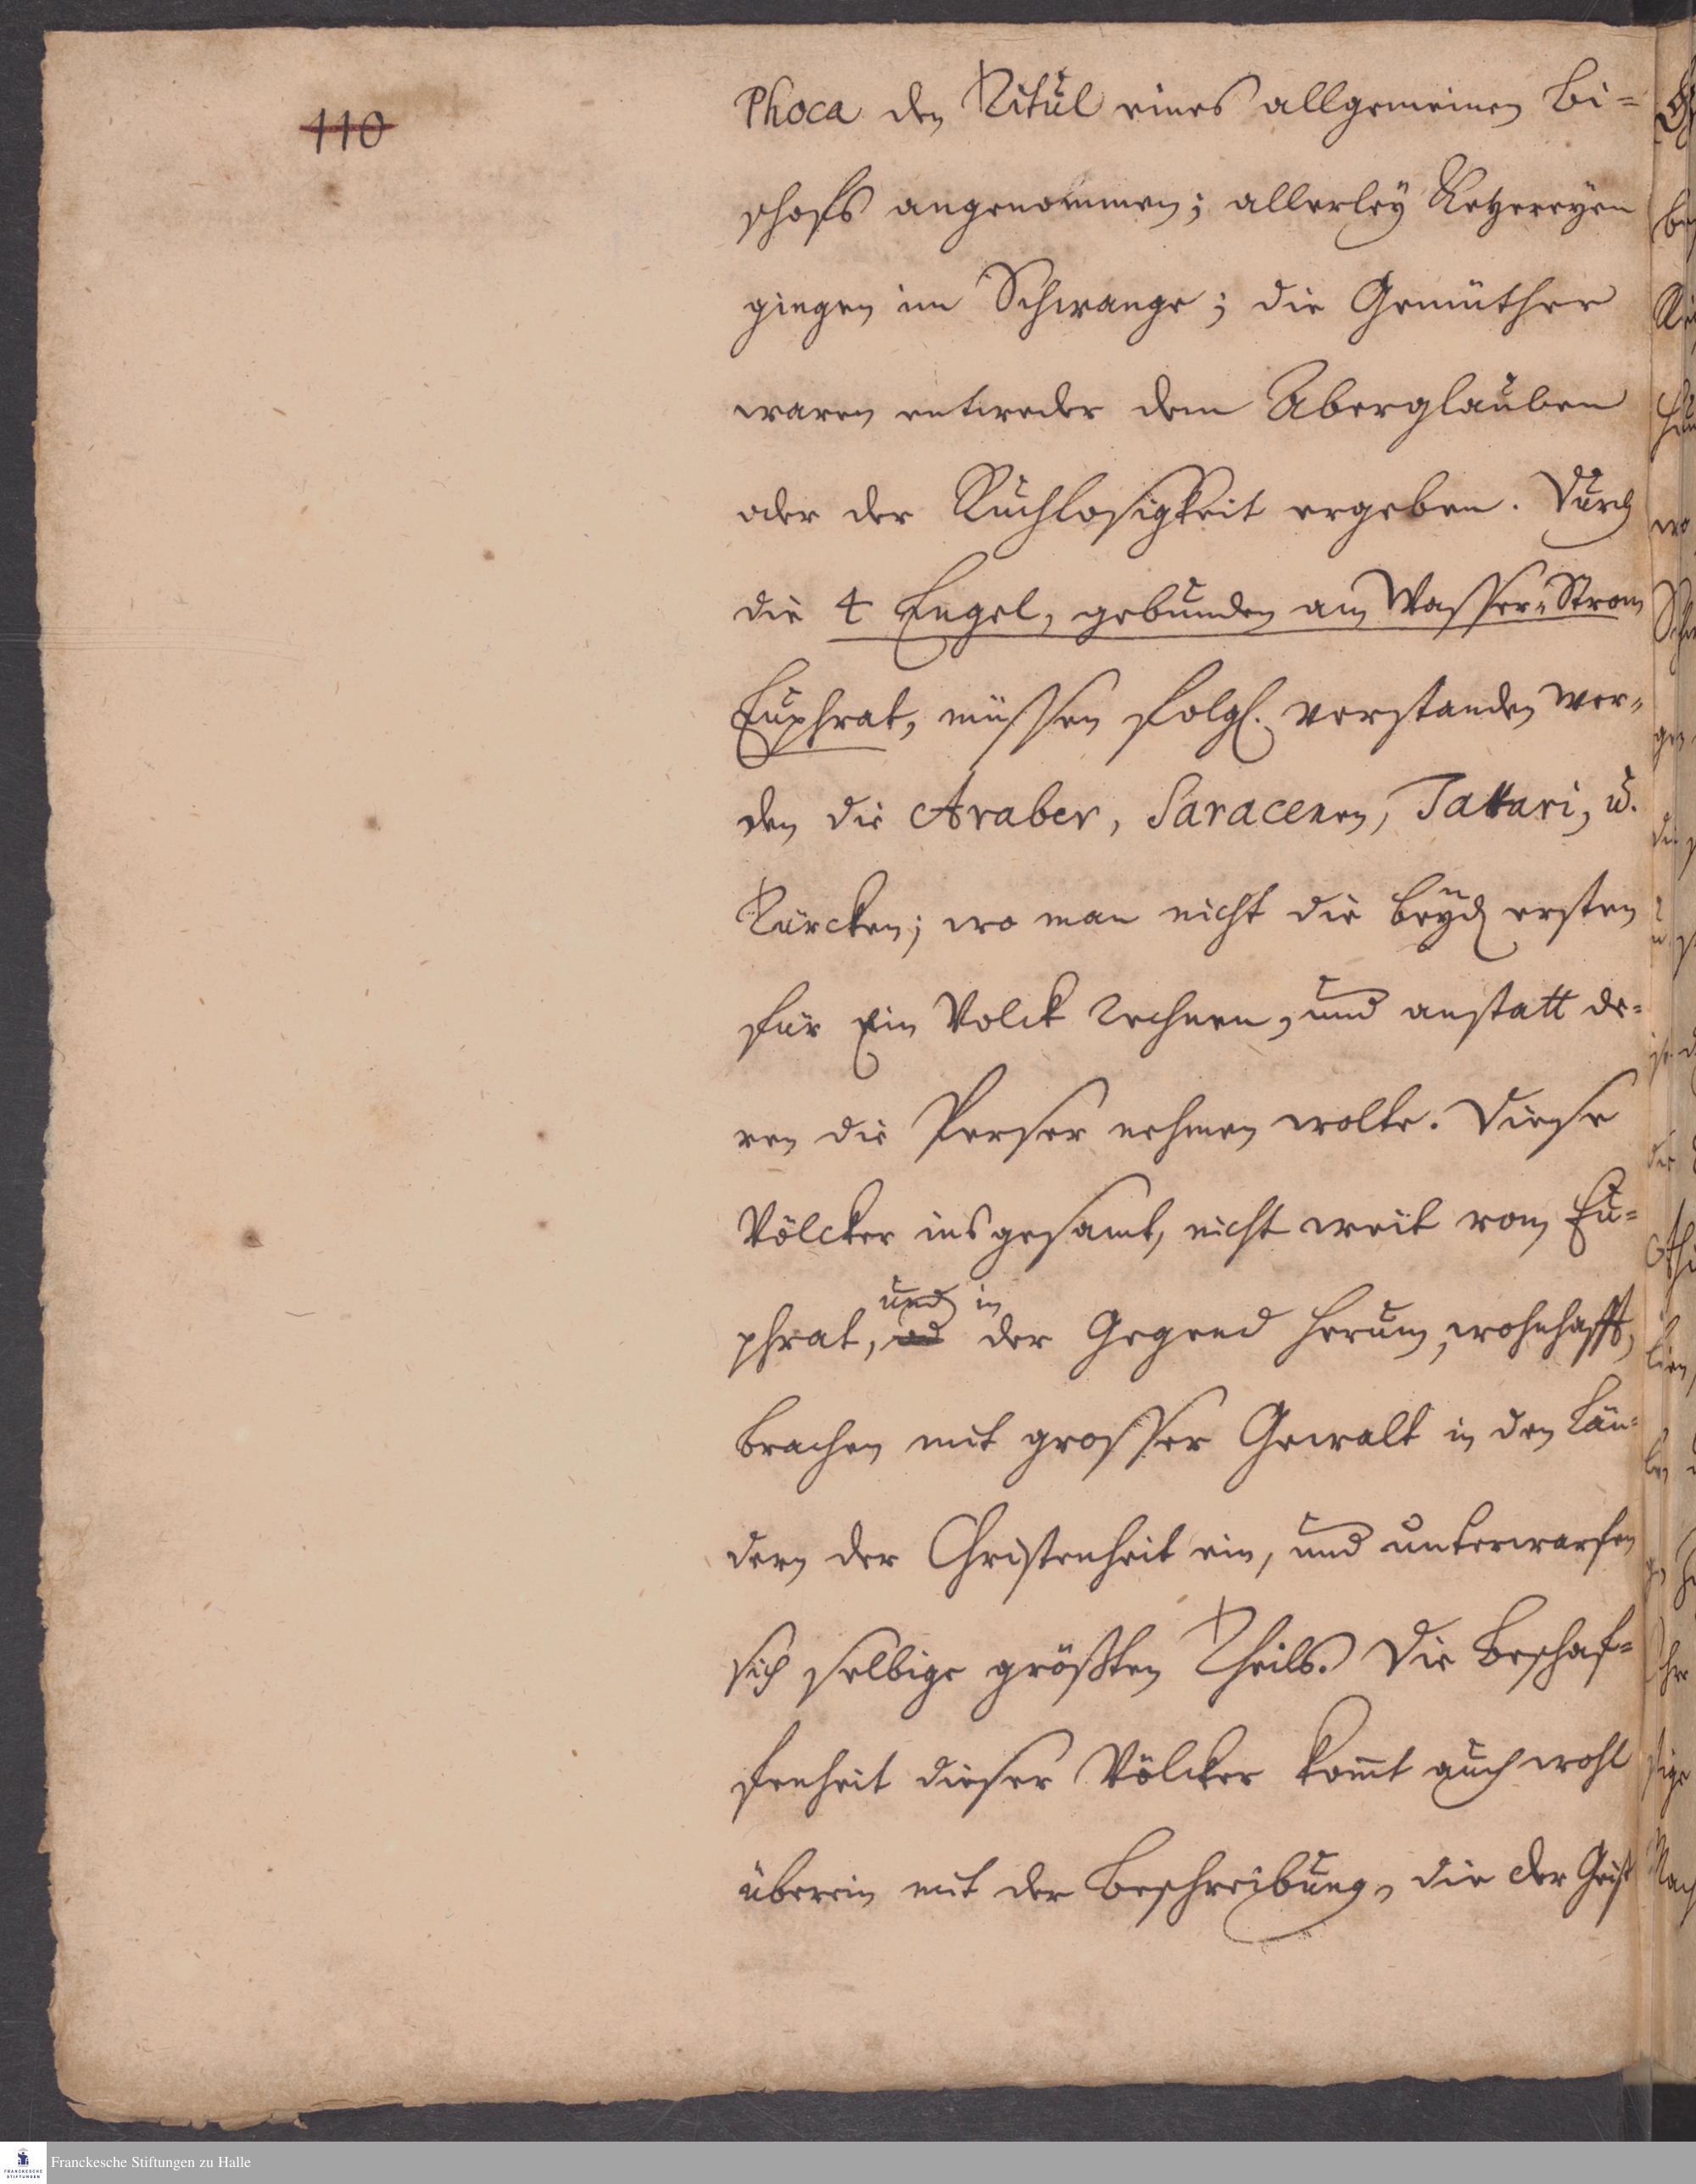 110
Phoca den Titul eines allgemeinen Bi=
schofs angenommen; allerley Ketzereyen
giengen im Schwange; die Gemüther
waren entweder dem Aberglauben
oder der Ruchlosigkeit ergeben. Durch
die 4 Engel, gebunden am Wasser=Strom
Euphrat, müssen folgl. verstanden wer=
den die Araber, Saracenen, Tattari, u.
Türcken; wo man nicht die beyden ersten
für Ein Volck rechnen, und anstatt de=
ren die Perser nehmen wolte. Diese
Völcker insgesamt, nicht weit vom Eu=
und in
phrat, od der Gegend herum, wohnhafft,
brachen mit grosser Gewalt in den Län=
dern der Christenheit ein, und unterwarfen
sich selbige größten Theils. Die Beschaf=
fenheit dieser Völcker komt auch wohl
überein mit der Beschreibung, die der Geist
Franckesche Stiftungen zu Halle